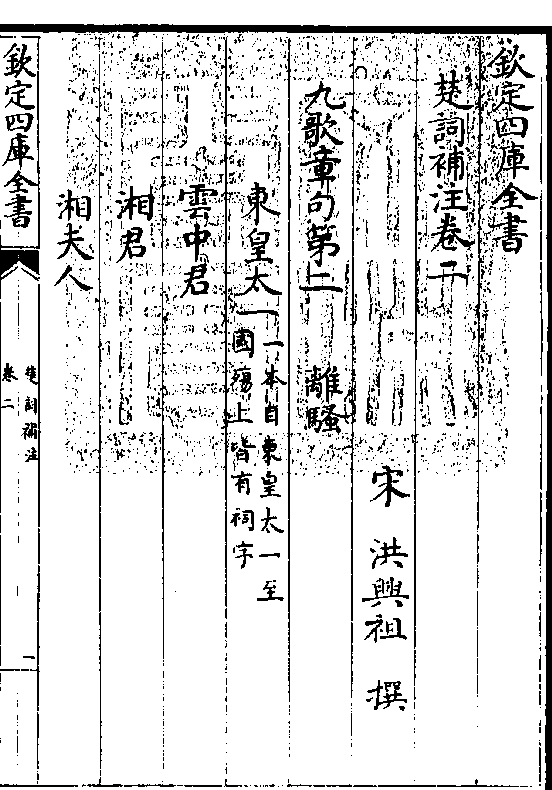 欽定四庫全書
楚詞補注卷二
宋 洪興祖 撰
九歌章句第二 離騷
東皇太一一本自東皇太一至國殤上皆有祠字
雲中君
湘君
湘夫人
欽定四庫全書
楚詞補注
卷二
一